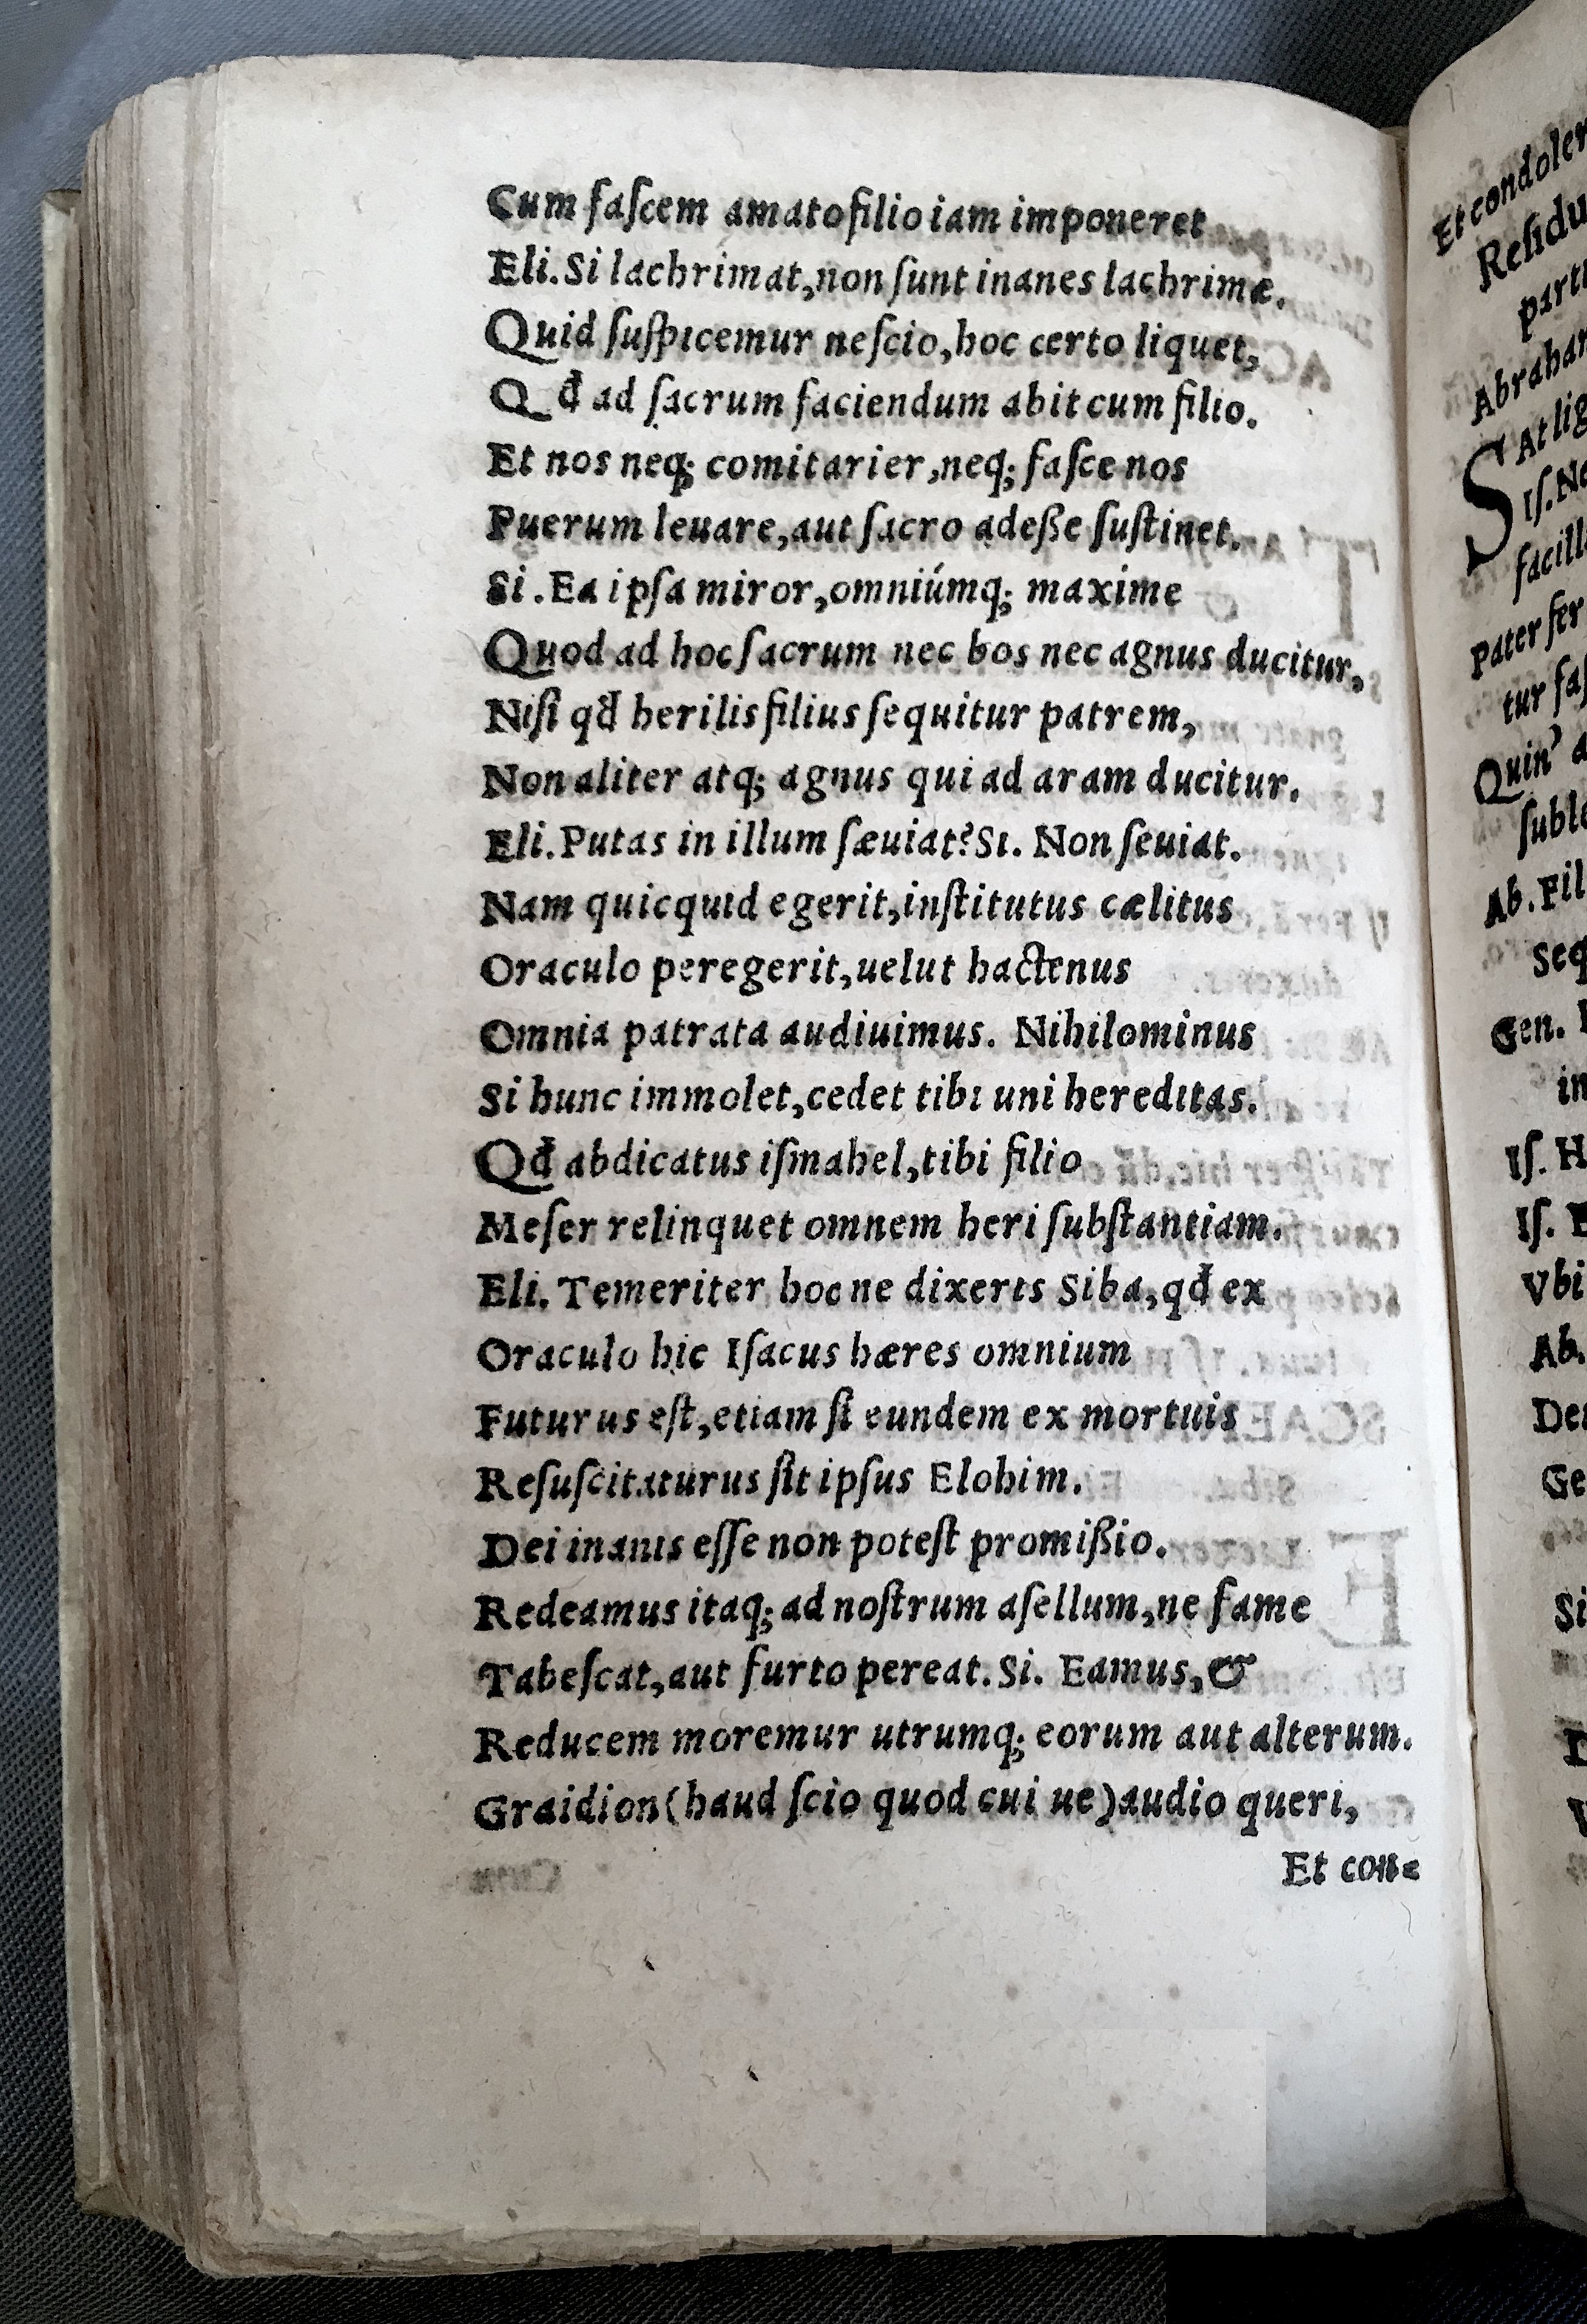 Cum faſcem amato filio iam imponeret
Eli. Si lachrimat, non ſunt inanes lachrimæ.
Quid ſuſpicemur neſcio, hoc certo liquet,
Qđ ad ſacrum faciendum abit cum filio.
Et nos neq; comitarier, neq; faſce nos
Puerum leuare, aut ſacro adeße ſuſtinet.
Si. Ea ipſa miror, omniúmq; maxime
Quod ad hoc ſacrum nec bos nec agnus ducitur,
Niſi qđ herilis filius ſequitur patrem,
Non aliter atq; agnus qui ad aram ducitur.
Eli. Putas in illum ſæuiat? Si. Non ſeuiat.
Nam quicquid egerit, inſtitutus cælitus
Oraculo peregerit, uelut hactenus
Omnia patrata audiuimus. Nihilominus
Si hunc immolet, cedet tibi uni hereditas.
Qđ abdicatus iſmahel, tibi filio
Meſer relinquet omnem heri ſubſtantiam.
Eli. Temeriter hoc ne dixeris Siba, qđ ex
Oraculo hic Iſacus hæres omnium
Futurus eſt, etiam ſi eundem ex mortuis
Reſuſcitaturus ſit ipſus Elohim.
Dei inanis eſſe non poteſt promißio.
Redeamus itaq; ad noſtrum aſellum, ne fame
Tabeſcat, aut furto pereat. Si. Eamus, &
Reducem moremur utrumq; eorum aut alterum.
Graidion (haud ſcio quod cui ue) audio queri,
Et con=
Et condoler
Reſidu
parti
Abraham
S At lig
Iſ. No
facill
Pater fer
tur faſ
Quin' a
ſubl
Ab. Fil
Seq
Gen.
in
Iſ. H
Iſ.
Vbi
Ab.
De
Ge
Si